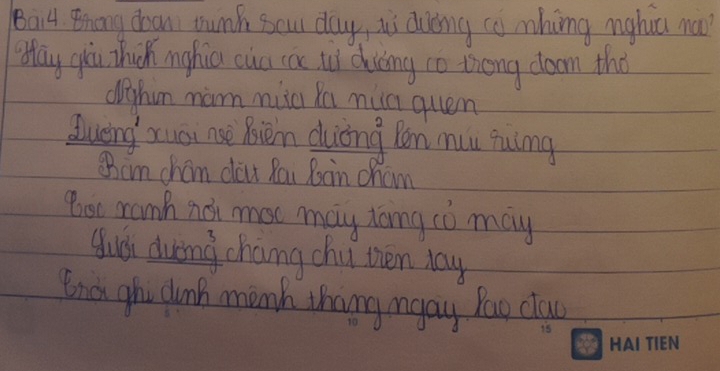 Bài 4. Trong đoạn trình sau đây, từ đường có những nghĩa nào?
Hãy giải thích nghĩa của các từ đường có trong đoạn thơ
Nghìn năm nửa lạ nửa quen
Đường¹ xuôi về biển đường² lên núi rừng
Bàn chân đâu lại bàn chân
Tóc xanh rồi mọc mấy tầng cỏ may
Dưới đường³ chằng chịt trên tay
Trời ghi định mệnh tháng ngày lao đao
5
10
15
HAI TIEN